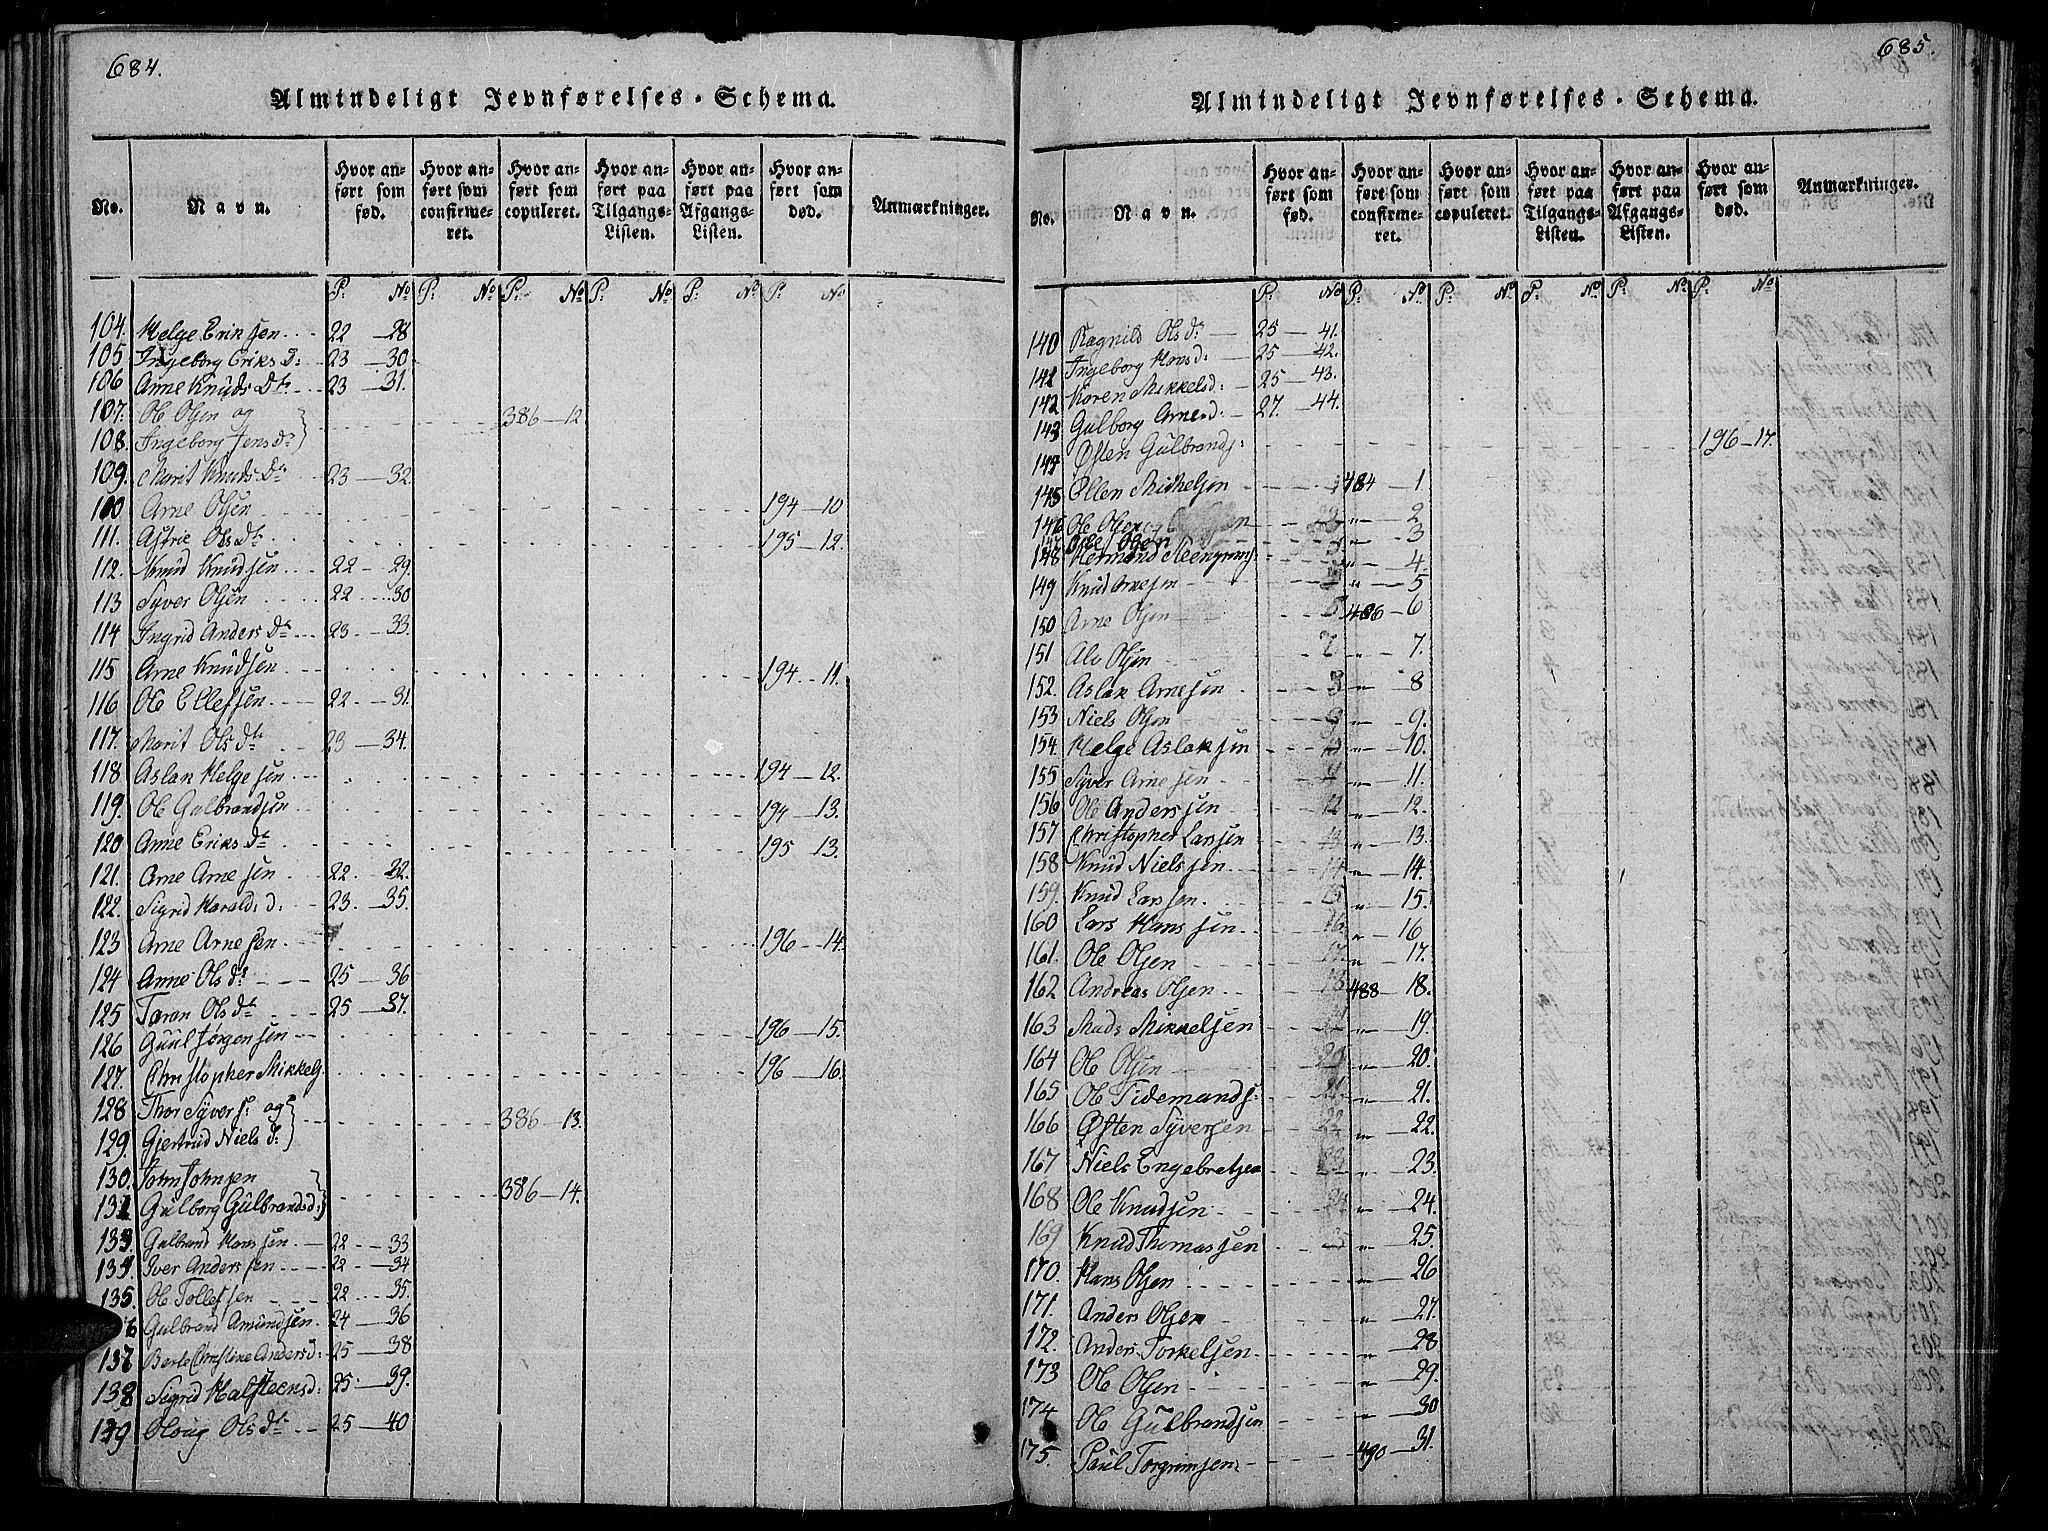 684.
Almindeligt Jevnførelses-Schema.
No. Navn. Hvor anført som fød. Hvor anført som confirmeret. Hvor anført som copuleret. Hvor anført paa Tilgangs-Listen. Hvor anført paa Afgangs-Listen. Hvor anført som død. Anmærkninger.
P: No P: No P: No P: No P: No P: No
104. Helge Eriksen 22 28
105 Ingeborg Eriks D: 23 30
106 Anne Knuds Dtr 23 31.
107. Ole Olsen og
108. Ingeborg Jensdr 386 12
109. Marit Knuds Dtr 23 32.
110 Arne Olsen 194 10
111. Astrie Olsdtr 195 12.
112. Knud Knudsen 22 29.
113 Syver Olsen 22 30
114 Ingrid Anders Dtr 23 33.
115 Arne Knudsen 194 11.
116 Ole Ellefsen 22 31.
117. Marit Olsdtr 23 34.
118 Aslak Helgesen 194 12.
119. Ole Gulbrandsen 194 13.
120 Anne Eriks Dtr 195 13.
121. Arne Arnesen 22. 32.
122. Sigrid Haralds d: 23. 35.
123 Arne Arnesen 196 14.
124 Anne Olsdr 25 36
125 Taran Olsdtr 25 37.
126 Guul Jørgensen 196 15.
127. Christopher Mikkels. 196 16.
128 Thor Syvers: og
129. Gjertrud Niels d: 386 13.
130. John Johnsen
131 Gulborg Gulbrandsd: 386 14.
133. Gulbrand Hansen 22 33
134. Iver Andersen 22 34
135. Ole Tollefsen 22 35.
6 Gulbrand Amundsen. 24 36
137 Berte Christine Andersd: 25 38
138 Sigrid Halsteensd: 25 39.
139 Oloug Olsdtr 25 40
685.
Almindeligt Jevnførelses-Schema.
No. Navn. Hvor anført som fød. Hvor anført som confirmeret. Hvor anført som copuleret. Hvor anført paa Tilgangs-Listen. Hvor anført paa Afgangs-Listen. Hvor anført som død. Anmærkninger.
P: No P: No P: No P: No P: No P: No
140 Ragnild Olsdr 25 41.
141 Ingeborg Hansd: 25 42.
142 Karen Mikkelsd: 25 43.
143 Gulborg Arnesd. 27. 44.
144 Østen Gulbrands: 196 17.
145 Ellen Mikkelsen 484 1
146 Ole Olsen " 2
147 Ole Olsen " 3
148 Hermund " 4.
149 Knud Arnesen " 5
150 Arne Olsen 486 6
151 Ole Olsen " 7.
152. Aslak Arnesen " 8
153 Niels Olsen " 9.
154. Helge Aslaksen " 10.
155 Syver Arnesen " 11.
156 Ole Andersen " 12.
157 Christopher Larsen " 13.
158 Knud Nielsen " 14.
159. Knud Larsen " 15.
160 Lars Hansen " 16
161. Ole Olsen " 17.
162 Andreas Olsen 488 18.
163 Mads Mikkelsen " 19.
164 Ole Olsen " 20.
165 Ole Tidemands: " 21.
166 Østen Syversen " 22.
167 Niels Engebretsen " 23.
168 Ole Knudsen " 24.
169 Knud Thomassen " 25.
170. Hans Olsen " 26
171. Anders Olsen " 27.
172. Anders Torkelsen " 28
173 Ole Olsen " 29.
174 Ole Gulbrandsen " 30
175. Paul Torgrimsen 490 31.